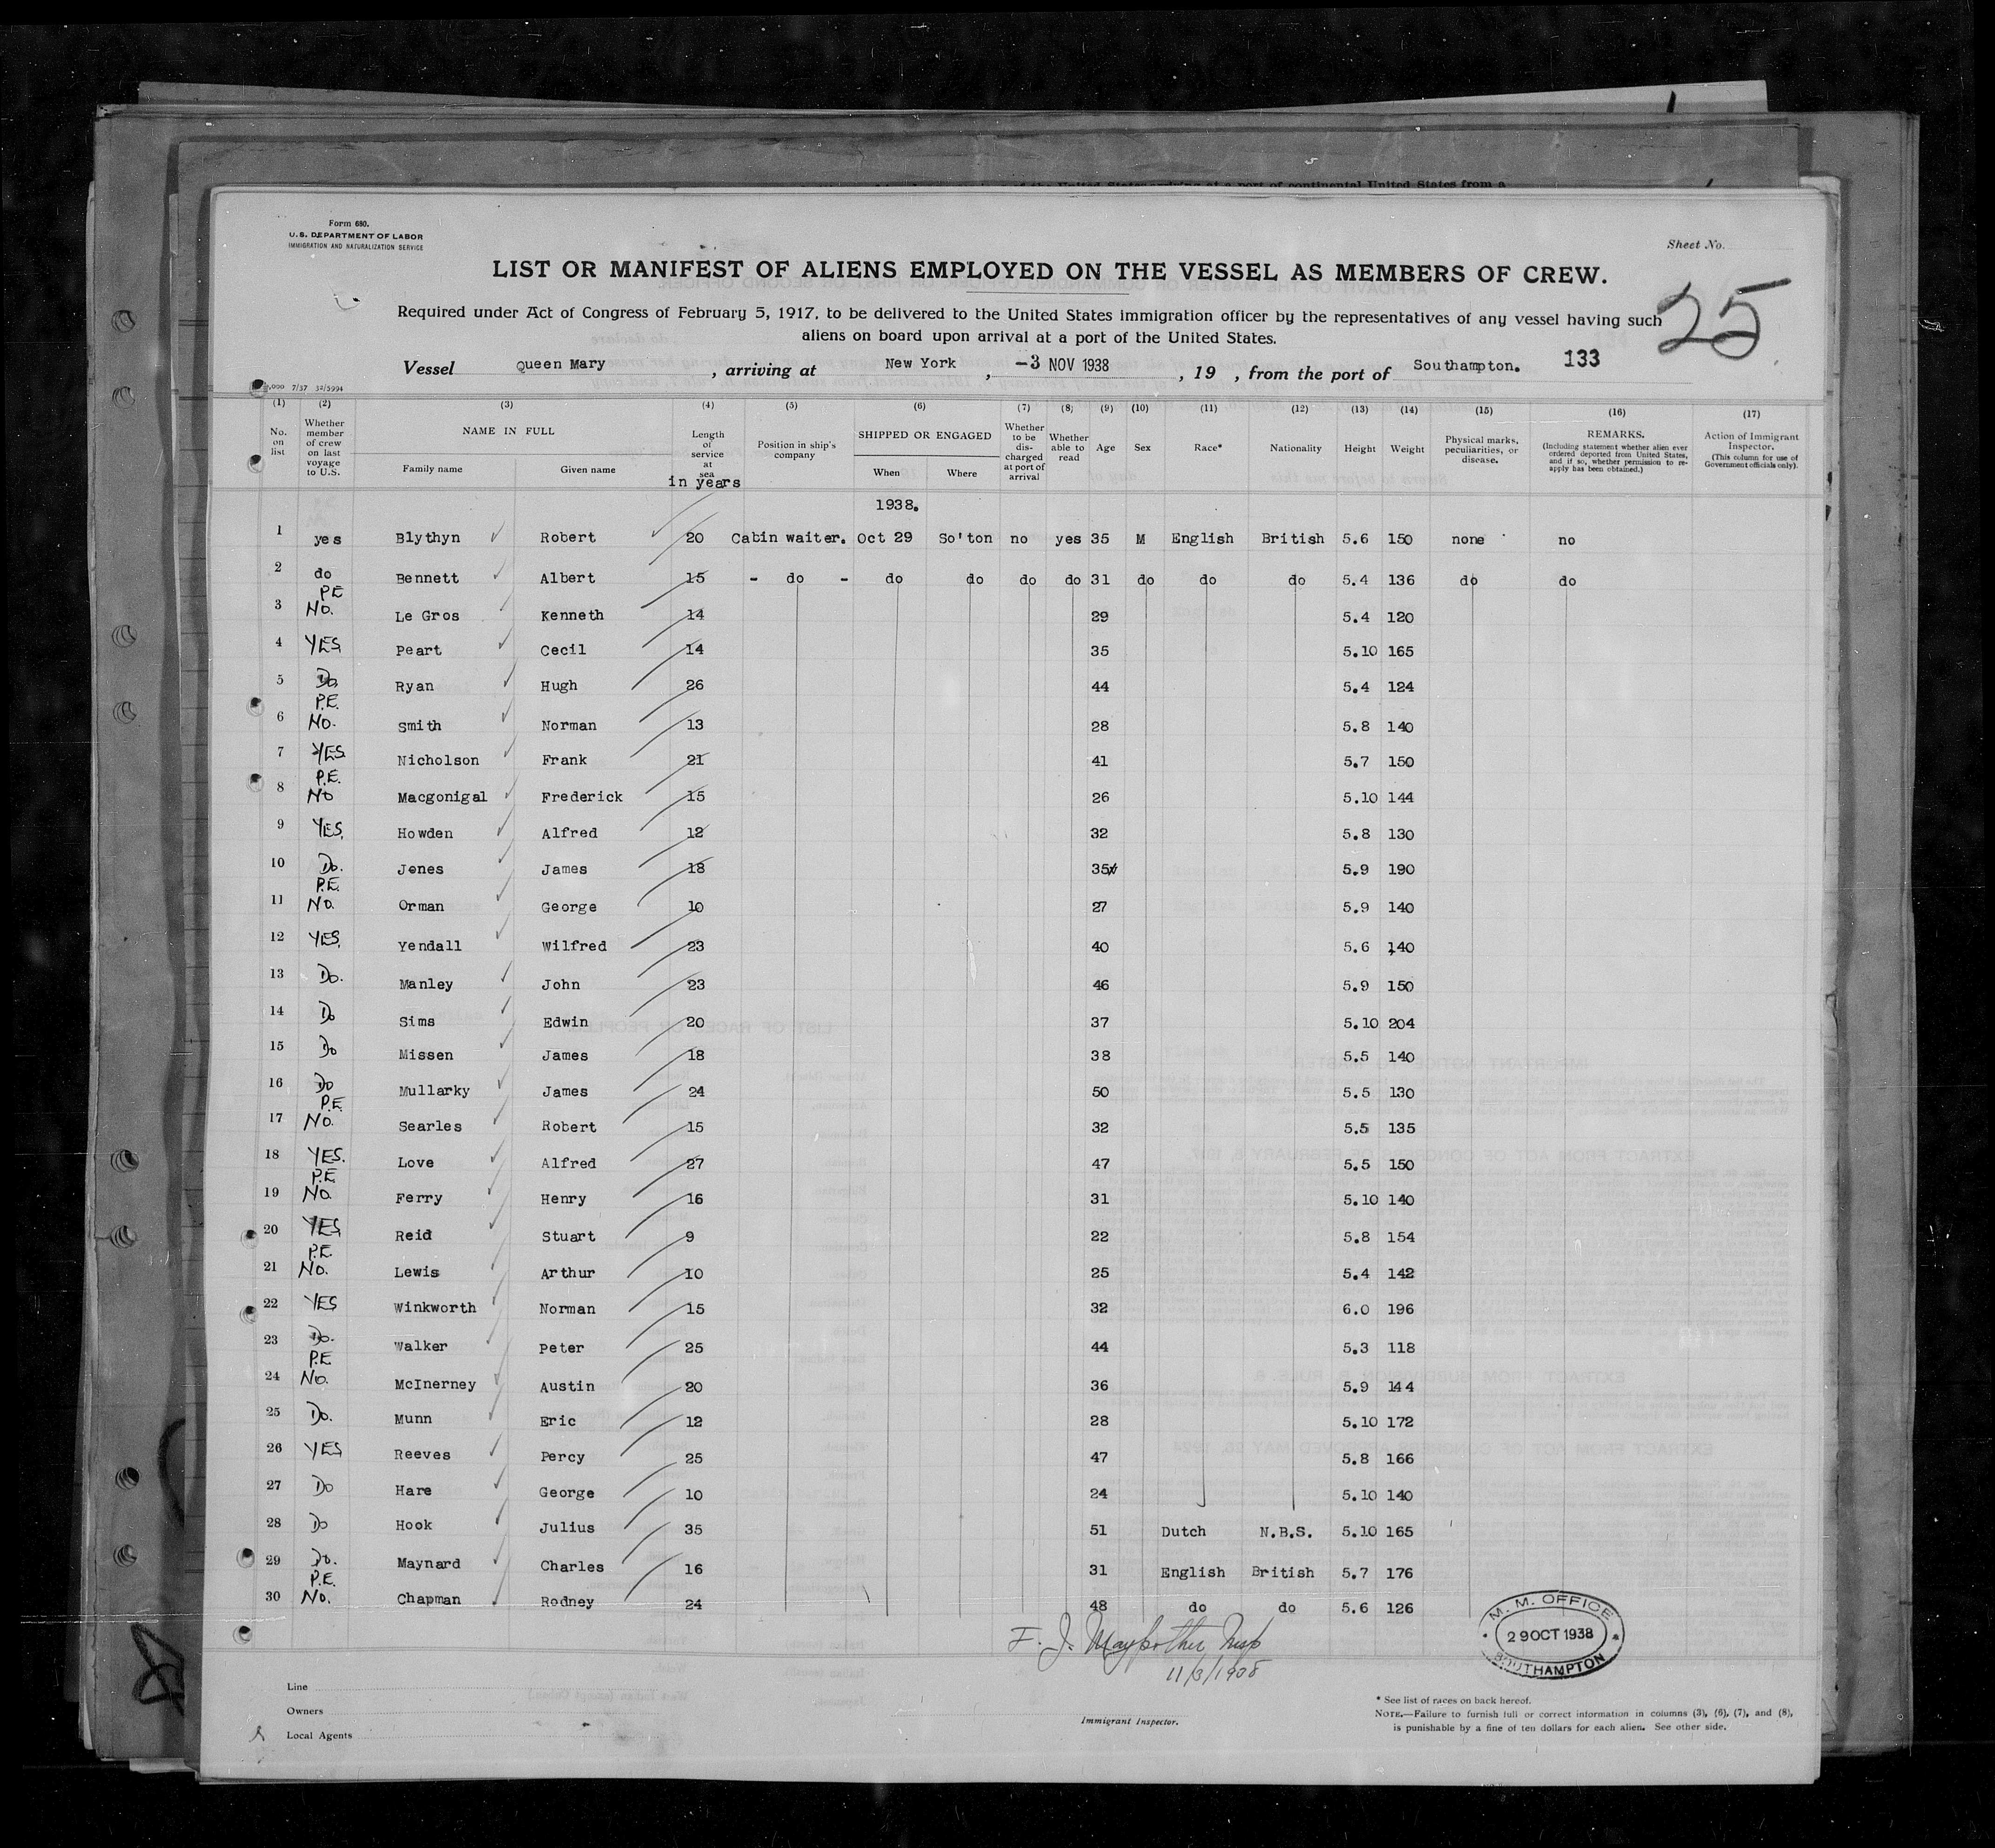 Form 680.
U.S. DEPARTMENT OF LABOR
IMMIGRATION AND NATURALIZATION SERVICE
Sheet No.
LIST OR MANIFEST OF ALIENS EMPLOYED ON THE VESSEL AS MEMBERS OF CREW.
25
Required under Act of Congress of February 5, 1917, to be delivered to the United States immigration officer by the representatives of any vessel having such
aliens on board upon arrival at a port of the United States.
Vessel Queen Mary, arriving at New York, -3 NOV 1938, 19 , from the port of Southampton. 133
,000 7/37 32/5994
(1) (2) (3) (4) (5) (6) (7) (8) (9) (10) (11) (12) (13) (14) (15) (16) (17)
No. on list
Whether member of crew on last voyage to U.S.
NAME IN FULL
Family name
Given name
Length of service at sea
in years
Position in ship's company
SHIPPED OR ENGAGED
When
Where
Whether to be discharged at port of arrival
Whether able to read
Age
Sex
Race*
Nationality
Height
Weight
Physical marks, peculiarities, or disease.
REMARKS.
(Including statement whether alien ever ordered deported from United States, and if so, whether permission to reapply has been obtained.)
Action of Immigrant Inspector.
(This column for use of Government officials only).
1938.
1 yes Blythyn Robert 20 Cabin waiter. Oct 29 So'ton no yes 35 M English British 5.6 150 none no
2 do Bennett Albert 15 - do - do do do do 31 do do do 5.4 136 do do
3 PE No. Le Gros Kenneth 14 29 5.4 120
4 YES Peart Cecil 14 35 5.10 165
5 Do. Ryan Hugh 26 44 5.4 124
6 P.E. No. Smith Norman 13 28 5.8 140
7 YES Nicholson Frank 21 41 5.7 150
8 P.E. No Macgonigal Frederick 15 26 5.10 144
9 YES. Howden Alfred 12 32 5.8 130
10 Do. Jones James 18 35 5.9 190
11 P.E. No. Orman George 10 27 5.9 140
12 YES. Yendall Wilfred 23 40 5.6 140
13 Do. Manley John 23 46 5.9 150
14 Do Sims Edwin 20 37 5.10 204
15 Do Missen James 18 38 5.5 140
16 Do Mullarky James 24 50 5.5 130
17 P.E. No. Searles Robert 15 32 5.5 135
18 YES. Love Alfred 27 47 5.5 150
19 P.E No. Ferry Henry 16 31 5.10 140
20 YES Reid Stuart 9 22 5.8 154
21 P.E. No. Lewis Arthur 10 25 5.4 142
22 YES Winkworth Norman 15 32 6.0 196
23 Do. Walker Peter 25 44 5.3 118
24 P.E No. McInerney Austin 20 36 5.9 144
25 Do. Munn Eric 12 28 5.10 172
26 YES Reeves Percy 25 47 5.8 166
27 Do Hare George 10 24 5.10 140
28 Do Hook Julius 35 51 Dutch N.B.S. 5.10 165
29 Do. Maynard Charles 16 31 English British 5.7 176
30 P.E. No. Chapman Rodney 24 48 do do 5.6 126
M. M. OFFICE
29 OCT 1938
SOUTHAMPTON
F. J. Maypother Insp
11/3/1938
Line
Owners
Local Agents
Immigrant Inspector.
* See list of races on back hereof.
NOTE.—Failure to furnish full or correct information in columns (3), (6), (7), and (8),
is punishable by a fine of ten dollars for each alien. See other side.